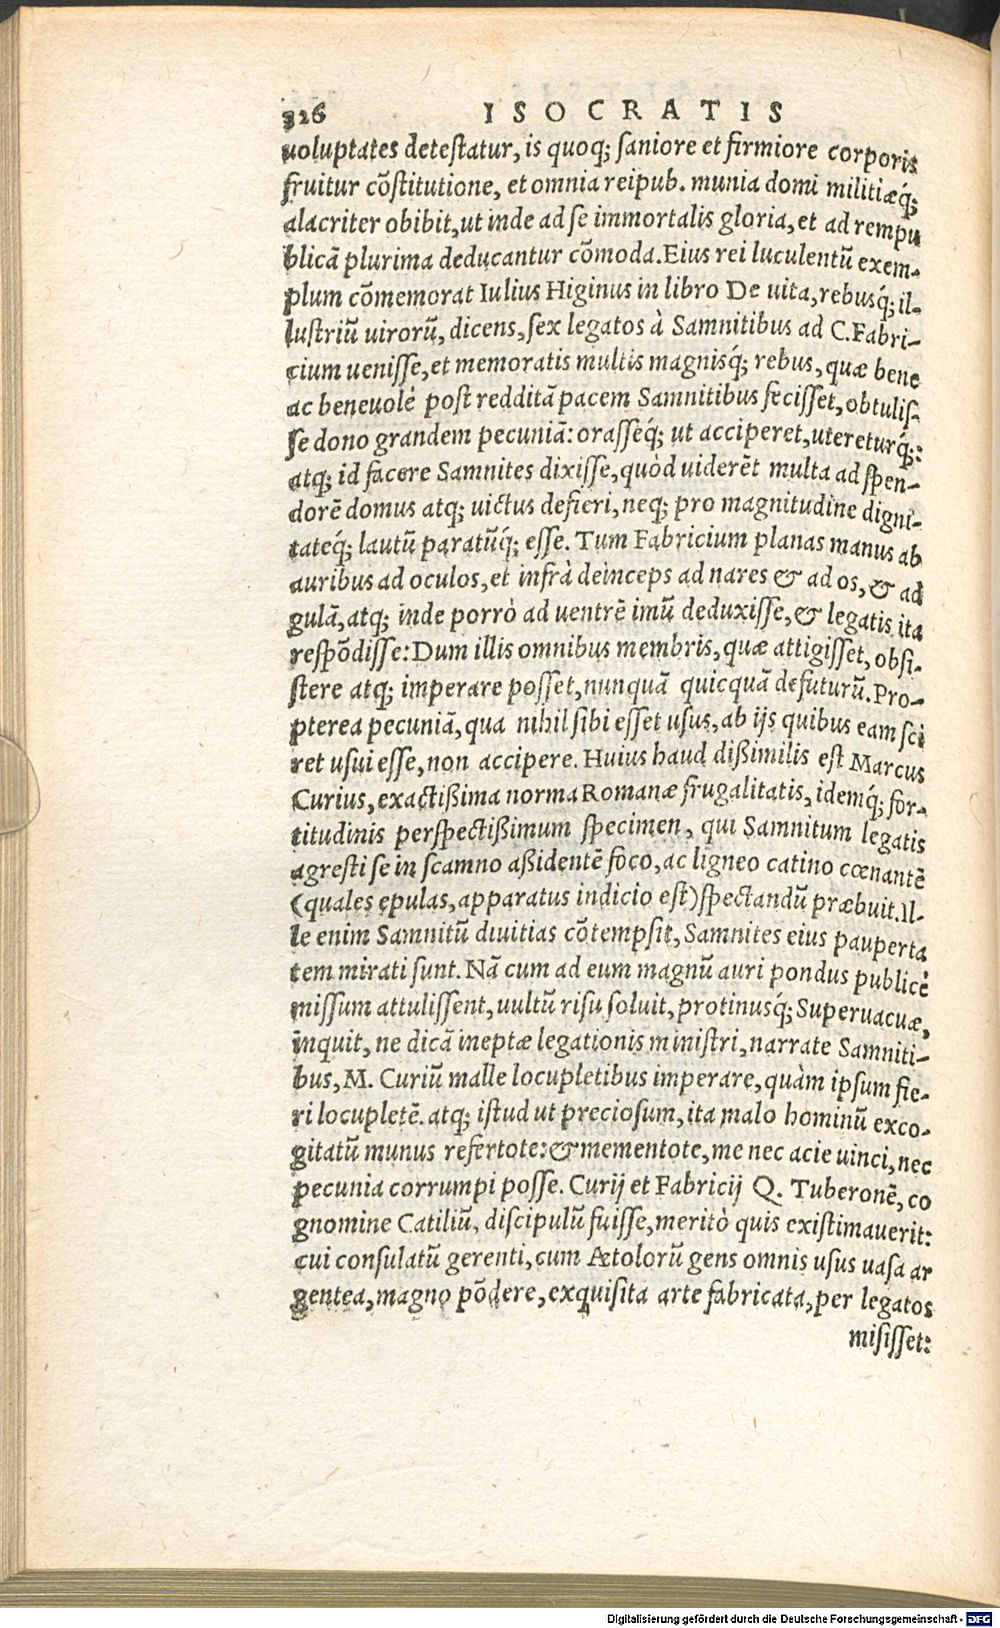 326 ISOCRATIS
uoluptates detestatur, is quoq; saniore et firmiore corporis
fruitur cõstitutione, et omnia reipub. munia domi militiæq́;
alacriter obibit, ut inde ad se immortalis gloria, et ad rempu
blicã plurima deducantur cõmoda. Eius rei luculentũ exem-
plum cõmemorat Iulius Higinus in libro De uita, rebusq́; il-
lustriũ uirorũ, dicens, sex legatos à Samnitibus ad C. Fabri-
cium uenisse, et memoratis multis magnisq́; rebus, quæ bene
ac beneuolè post redditã pacem Samnitibus fecisset, obtulis-
se dono grandem pecuniã: orasseq́; ut acciperet, utereturq́;:
atq; id facere Samnites dixisse, quòd uiderẽt multa ad splen-
dorẽ domus atq; uictus defieri, neq; pro magnitudine digni-
tateq́; lautũ paratũq́; esse. Tum Fabricium planas manus ab
auribus ad oculos, et infrà deinceps ad nares & ad os, & ad
gulã, atq; inde porrò ad uentrẽ imũ deduxisse, & legatis ita
respõdisse: Dum illis omnibus membris, quæ attigisset, obsi-
stere atq; imperare posset, nunquã quicquã defuturũ. Pro-
pterea pecuniã, qua nihil sibi esset usus, ab ijs quibus eam sci
ret usui esse, non accipere. Huius haud dißimilis est Marcus
Curius, exactißima norma Romanæ frugalitatis, idemq́; for-
titudinis perspectißimum specimen, qui Samnitum legatis
agresti se in scamno aßidentẽ foco, ac ligneo catino cœnantẽ
(quales epulas, apparatus indicio est) spectandũ præbuit. Il-
le enim Samnitũ diuitias cõtempsit, Samnites eius pauperta
tem mirati sunt. Nã cum ad eum magnũ auri pondus publicè
missum attulissent, uultũ risu soluit, protinusq́; Superuacuæ,
inquit, ne dicã ineptæ legationis ministri, narrate Samniti-
bus, M. Curiũ malle locupletibus imperare, quàm ipsum fie-
ri locupletẽ. atq; istud ut preciosum, ita malo hominũ exco-
gitatũ munus refertote: & mementote, me nec acie uinci, nec
pecunia corrumpi posse. Curij et Fabricij Q. Tuberonẽ, co
gnomine Catiliũ, discipulũ fuisse, meritò quis existimauerit:
cui consulatũ gerenti, cum Ætolorũ gens omnis usus uasa ar
gentea, magno põdere, exquisita arte fabricata, per legatos
misisset:
Digitalisierung gefördert durch die Deutsche Forschungsgemeinschaft - DFG